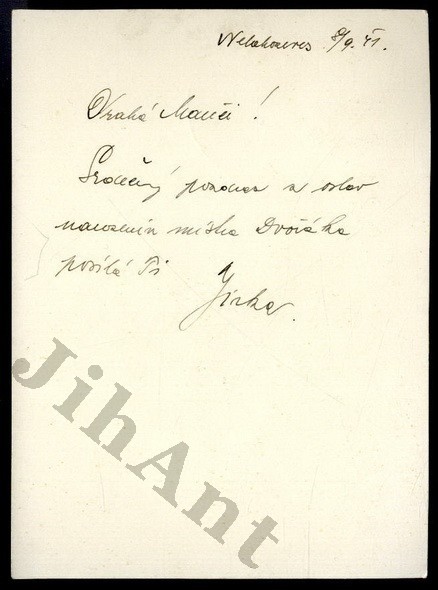 Nelahozeves 8/9. 41.
Drahá Manči!
Srdečný pozdrav z oslav
narozenin mistra Dvořáka
posílá Ti
Jirka.
JihAnt